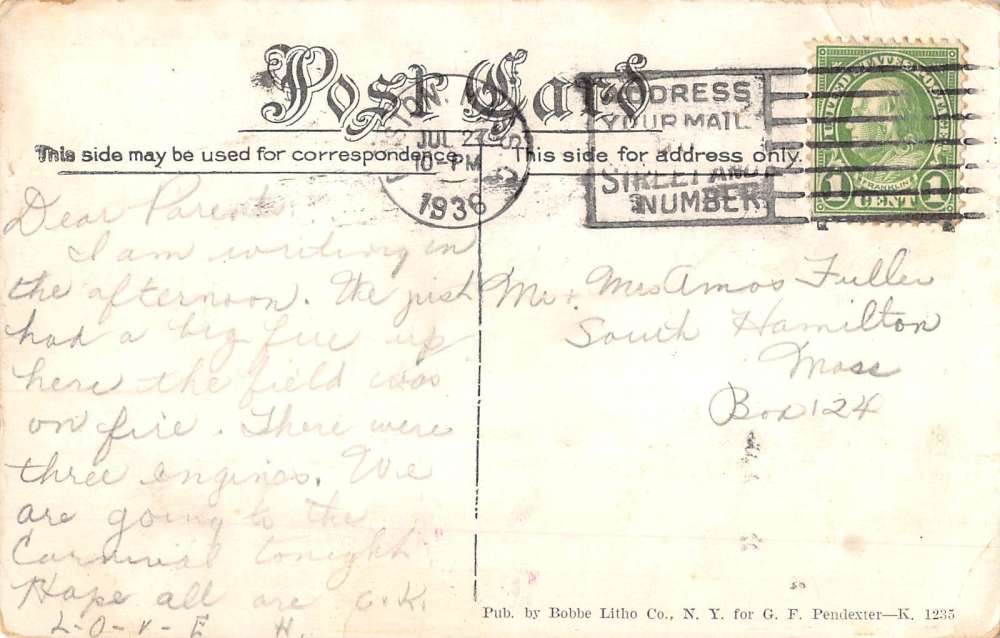 Post Card
This side may be used for correspondence.
This side for address only.
JUL 27
10 PM
1936
ADDRESS
YOUR MAIL
STREET AND
NUMBER
UNITED STATES POSTAGE
FRANKLIN
1 CENT 1
Dear Parents,
I am writing in
the afternoon. We just
had a big fire up
here the field was
on fire. There were
three engines. We
are going to the
Carnival tonight
Hope all are O.K.
L-O-V-E H.
Mr + Mrs Amos Fuller
South Hamilton
Mass
Box 124
Pub. by Bobbe Litho Co., N. Y. for G. F. Pendexter—K. 1235